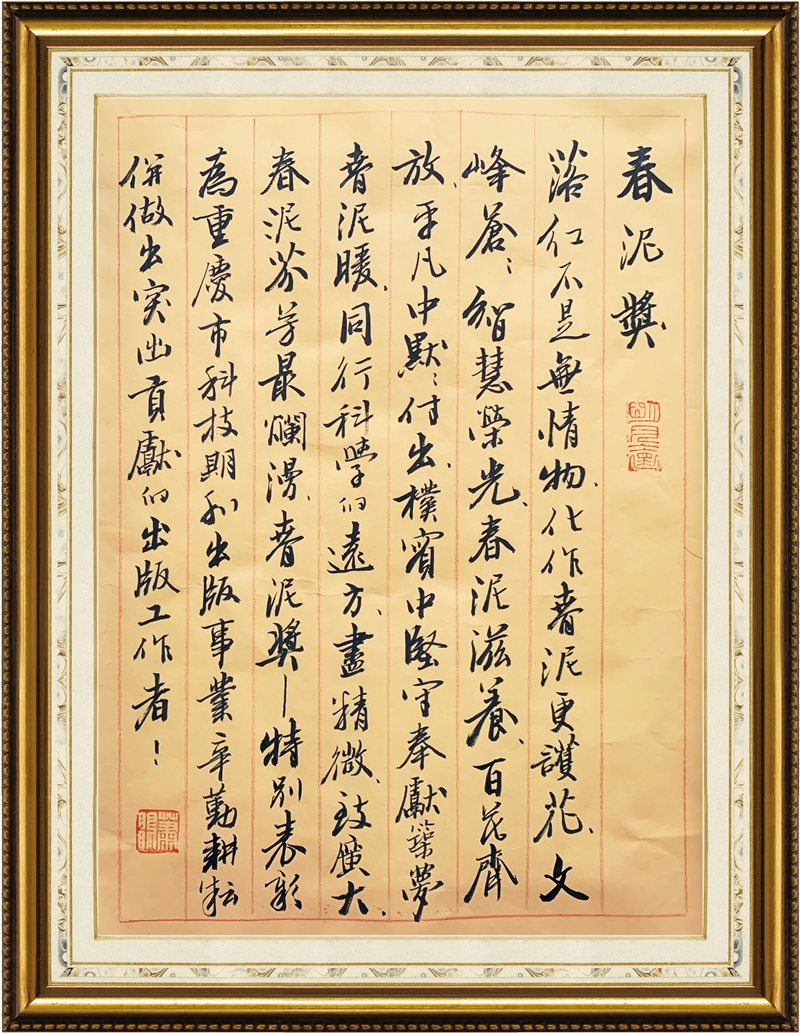 春泥獎
落紅不是無情物、化作春泥更護花、文
峰蒼蒼、智慧榮光、春泥滋養、百花齊
放、平凡中默默付出、樸實中堅守奉獻、築夢
春泥暖、同行科學的遠方、盡精微、致廣大、
春泥芬芳最爛漫、春泥獎—特別表彰
為重慶市科技期刊出版事業辛勤耕耘
併做出突出貢獻的出版工作者！
蕭明